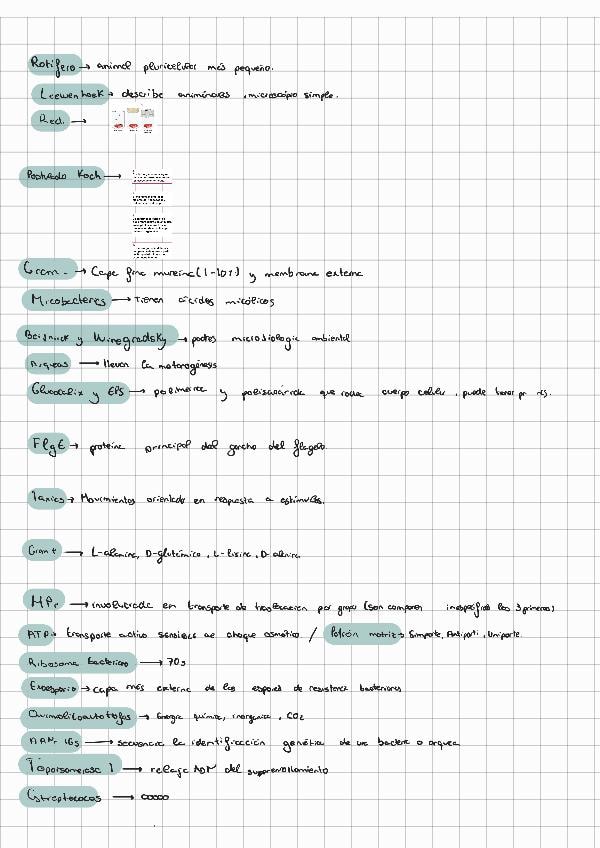 Rotífero → animal pluricelular más pequeño.
Leewenhoek → describe animáculos, microscopio simple.
Red. →
Postulado Koch →
Gram - → Capa fina mureína (1-10%) y membrana externa
Micobacterias → Tienen ácidos micólicos
Beijerinck y Winogradsky → padres microbiología ambiental
Arqueas → llevan la metanogénesis
Glucocalix y EPS → polímeros y polisacárido que rodea cuerpo celular, puede tener
FlgE → proteína principal del gancho del flagelo.
Taxias → Movimientos orientado en respuesta a estímulos.
Gram + → L-alanina, D-glutámico, L-lisina, D-alanina
HPr → involucrada en transporte de traslocación por grupo (son componen inespecíficas las 3 primeras)
ATP → transporte activo sensible al choque osmótico / Potrón matriz → Simporte, Antiporte, Uniporte.
Ribosoma bacteriano → 70s
Exosporio → capa más externa de las esporas de resistencia bacterianas
Quimiolitoautótrofos → Energía química, inorgánica, CO2
ARNr 16s → secuencia la identificación genética de una bacteria o arquea
Topoisomerasa 1 → relaja ADN del superenrollamiento
Estreptococos →